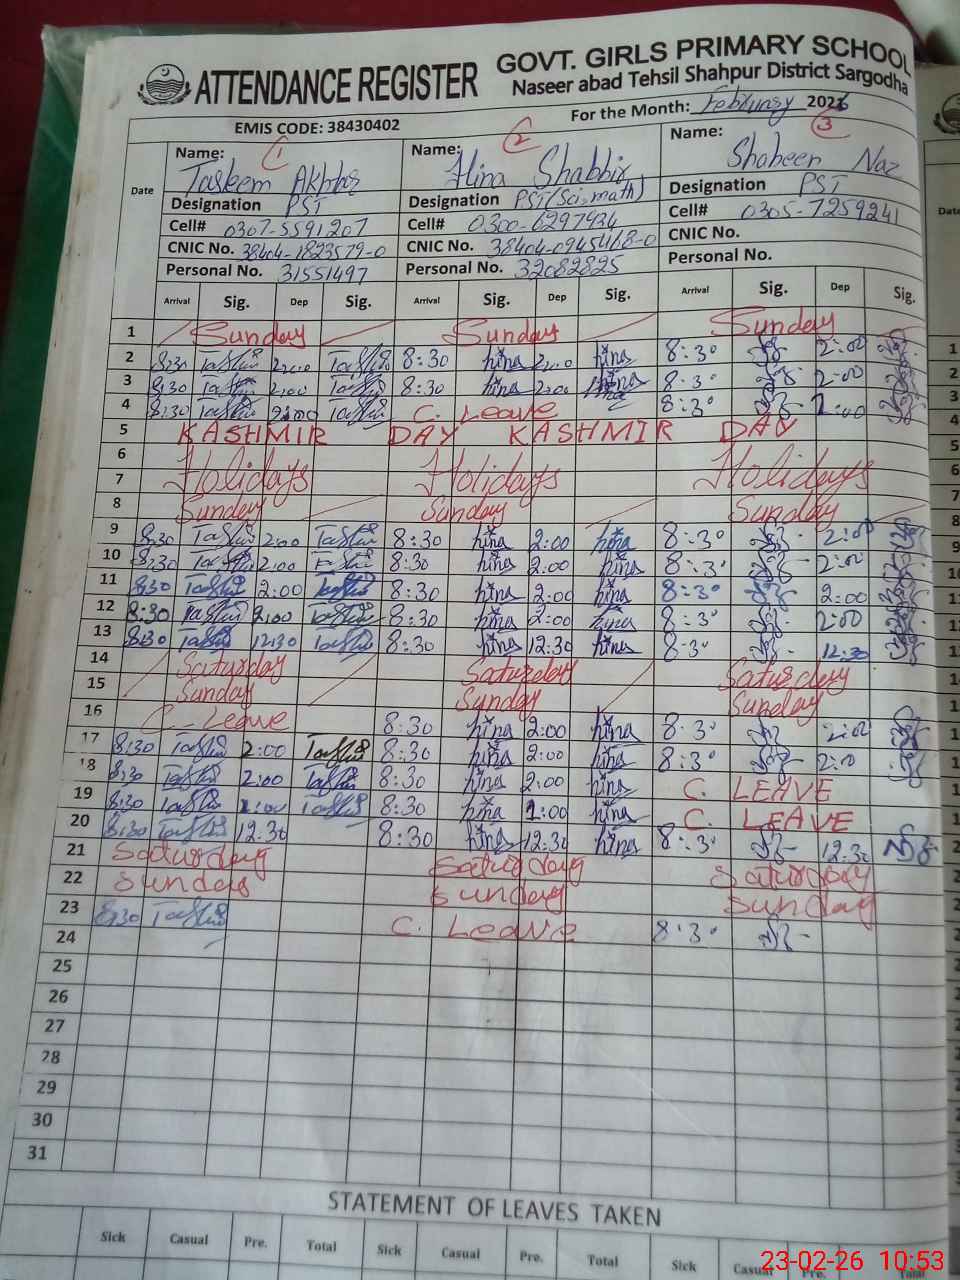 ATTENDANCE REGISTER
GOVT. GIRLS PRIMARY SCHOOL
Naseer abad Tehsil Shahpur District Sargodha
EMIS CODE: 38430402 For the Month: 2026
Date Name: 1 Name: 2 Name: 3
Tasleem Akhtar Hina Shabbir Shaheen Naz
Designation PST Designation PST(Sci, math) Designation PST
Cell# 0307-5591207 Cell# 0300-6297934 Cell# 0305-7259241
CNIC No. 38404-1823579-0 CNIC No. 38404-0945468-0 CNIC No.
Personal No. 31551497 Personal No. 32082825 Personal No.
Arrival Sig. Dep Sig. Arrival Sig. Dep Sig. Arrival Sig. Dep Sig.
1 Sunday Sunday Sunday
2 8:30 2:00 8:30 hina 2:00 hina 8:30 2:00
3 8:30 2:00 8:30 hina 2:00 hina 8:30 2:00
4 8:30 2:00 C. Leave 8:30 2:00
5 KASHMIR DAY KASHMIR DAY
6
7 Holidays Holidays Holidays
8 Sunday Sunday Sunday
9 8:30 2:00 8:30 hina 2:00 hina 8:30 2:00
10 8:30 2:00 8:30 hina 2:00 hina 8:30 2:00
11 8:30 2:00 8:30 hina 2:00 hina 8:30 2:00
12 8:30 2:00 8:30 hina 2:00 hina 8:30 2:00
13 8:30 12:30 8:30 hina 12:30 hina 8:30 12:30
14 Saturday Saturday Saturday
15 Sunday Sunday Sunday
16 C. Leave 8:30 hina 2:00 hina 8:30 2:00
17 8:30 2:00 8:30 hina 2:00 hina 8:30 2:00
18 8:30 2:00 8:30 hina 2:00 hina C. LEAVE
19 8:30 1:00 8:30 hina 1:00 hina C. LEAVE
20 8:30 12:30 8:30 hina 12:30 hina 8:30 12:30
21 Saturday Saturday Saturday
22 Sunday Sunday Sunday
23 8:30 C. Leave 8:30
24
25
26
27
28
29
30
31
STATEMENT OF LEAVES TAKEN
Sick Casual Pre. Total Sick Casual Pre. Total Sick Casual Pre. Total
23-02-26 10:53